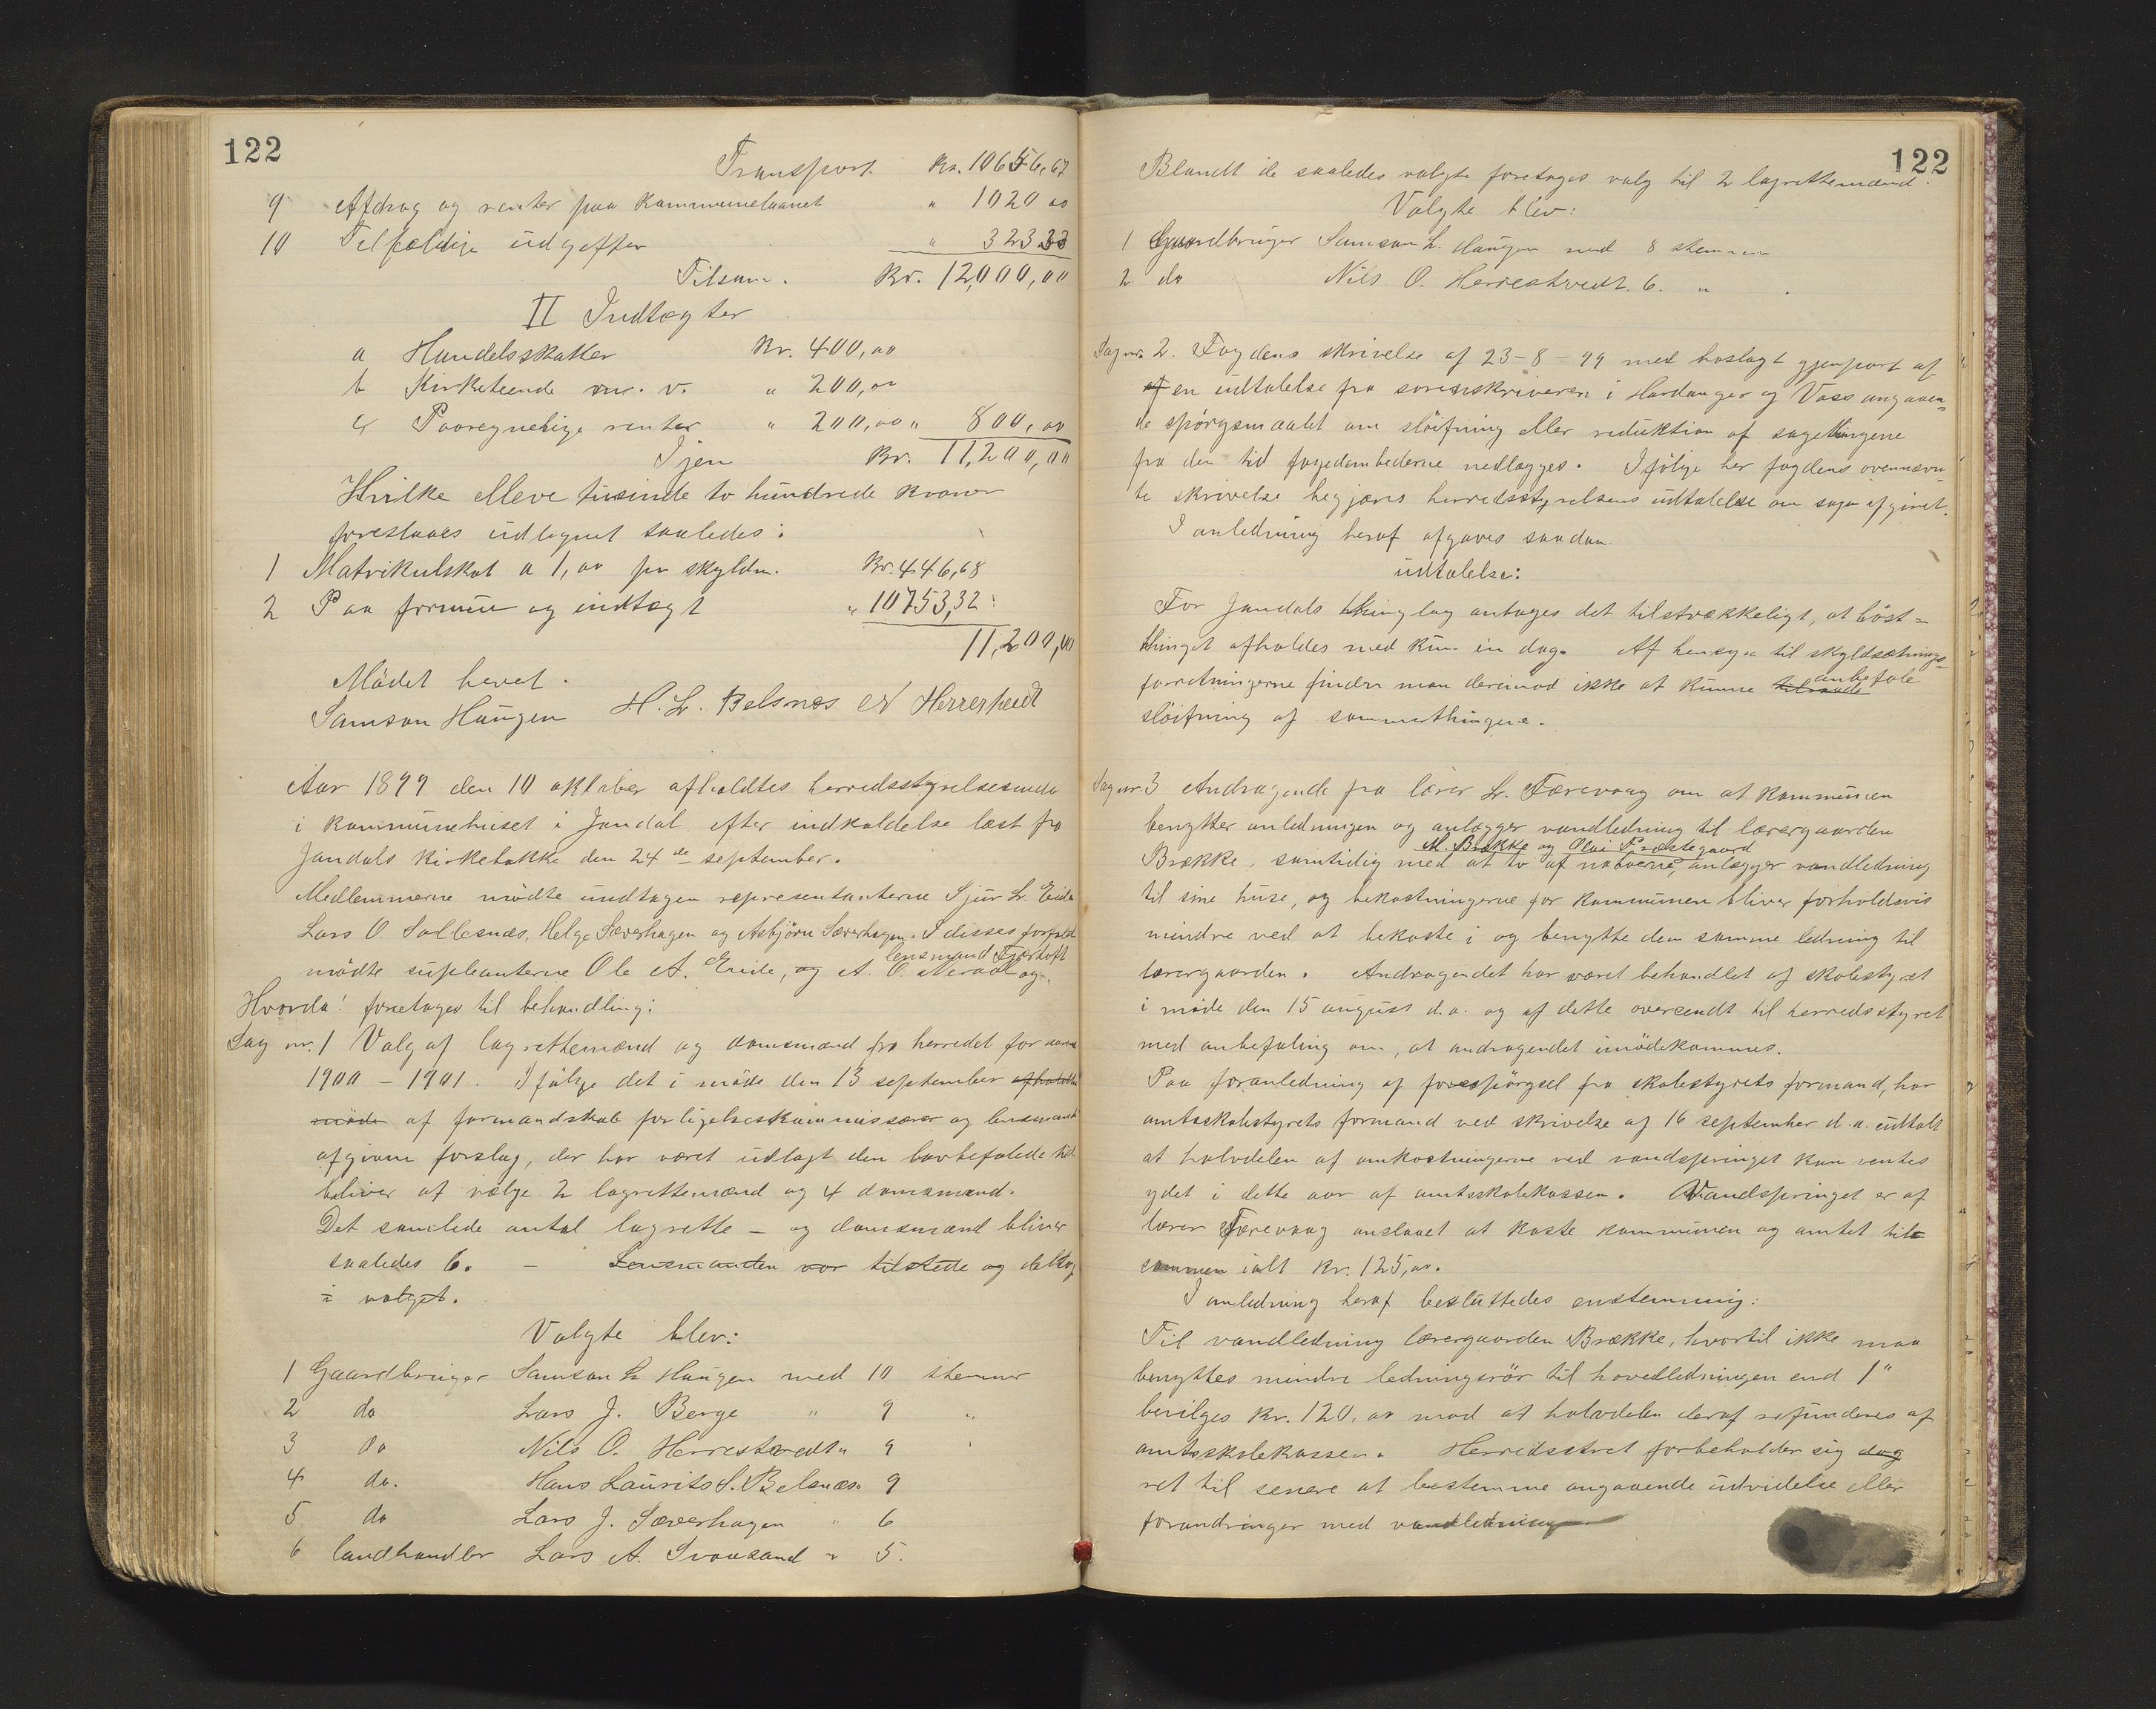 122
Transport. Kr. 10656,67
9 Afdrag og renter paa kommunelaanet " 1020 00
10 Tilfældige udgifter " 323 33
Tilsam. Kr. 12,000,00
II Indtægter
a Handelsskatter Kr. 400,00
b Kirketiende m. v. " 200,00
c Paaregnelige renter " 200,00 " 800,00
Igjen Kr. 11,200,00
Hvilke elleve tusinde to hundrede kroner
foreslaaes udlignet saaledes:
1 Matrikulskat a 1,00 pr skyldm. Kr. 446,68
2 Paa formue og indtægt " 10753,32
11,200,00
Mødet hevet.
Samson Haugen H. L. Belsnæs N Herrestvedt
Aar 1899 den 10 oktober afholdtes herredsstyrelsesmøde
i kommunehuset i Jondal efter indkaldelse læst fra
Jondals kirkebakke den 24de september.
Medlemmerne mødte undtagen representanterne Sjur L. Eide
Lars O. Sollesnæs, Helge Sæverhagen og Asbjørn Sæverhagen. I disses forfald
mødte supleanterne Ole A. Eide, og A. O. og lensmand
Hvorda! foretages til behandling:
Sag nr. 1 Valg af lagrettemænd og domsmænd fra herredet for aarene
1900 – 1901. Ifølge det i møde den 13 september afholdte
møde af formandskab forligelseskommissærer og lensmand
afgivne forslag, der har været udlagt den lovbefalede tid
bliver at vælge 2 lagrettemænd og 4 domsmænd.
Det samlede antal lagrette – og domsmænd bliver
saaledes 6. – Lensmanden var tilstede og deltog
i valget.
Valgte blev:
1 Gaardbruger Samson L. Haugen med 10 stemmer
2 do Lars J. Berge " 9 "
3 do Nils O. Herrestvedt " 9
4 do. Hans Laurits S. Belsnæs " 9
5 do Lars J. Sæverhagen " 6
6 landhandler Lars A. " 5.
122
Blandt de saaledes valgte foretages valg til 2 lagrettemænd.
Valgte blev:
1 Gaardbruger Samson L. Haugen med 8 stemmer
2 do Nils O. Herrestvedt. 6. "
Sag nr. 2. Fogdens skrivelse af 23-8-99 med hoslagt gjenpart af
af en udtalelse fra sorenskriveren i Hardanger og Voss angaaen-
de spørgsmaalet om sløifning eller reduktion af sagethingene
fra den tid fogedembederne nedlægges. Ifølge her fogdens ovennævn-
te skrivelse begjæres herredsstyrelsens udtalelse om sagen afgivet.
I anledning heraf afgaves saadan
udtalelse:
For Jondals thinglag antages det tilstrækkeligt, at høst-
thinget afholdes med kun en dag. Af hensyn til skyldsætnings-
forretningerne finder man derimod ikke at kunne tilraade anbefale
sløifning af sommerthingene.
Sag nr. 3 Andragende fra lærer L. Færevaag om at kommunen
benytter anledningen og anlægger vandledning til lærergaarden
Brække, samtidig med at to af naboerne, M. Brække og Olai Præstegaard anlægger vandledning
til sine huse, og bekostningerne for kommunen bliver forholdsvis
mindre ved at bekoste i og benytte den samme ledning til
lærergaarden. Andragendet har været behandlet af skolestyret
i møde den 15 august d.a. og af dette oversendt til herredsstyret
med anbefaling om, at andragendet imødekommes.
Paa foranledning af forespørgsel fra skolestyrets formand, har
amtsskolestyrets formand ved skrivelse af 16 september d.a. udtalt
at halvdelen af omkostningerne ved vandspringet kan ventes
ydet i dette aar af amtsskolekassen. Vandspringet er af
lærer Færevaag anslaaet at koste kommunen og amtet til-
sammen ialt Kr. 125,00.
I anledning heraf besluttedes enstemmig:
Til vandledning lærergaarden Brække, hvortil ikke maa
benyttes mindre ledningsrør til hovedledningen end 1"
bevilges Kr. 120,00 mod at halvdelen deraf refunderes af
amtsskolekassen. Herredsstret forbeholder sig dog
ret til senere at bestemme angaaende udvidelse eller
forandringer med vandledningen